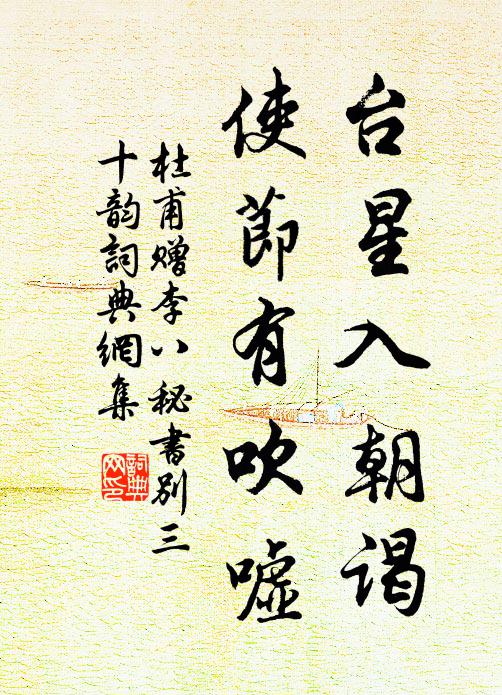 台星入朝谒
使節有吹嘘
杜甫赠李八秘書別三
十韵詞典網集
詞典
网印